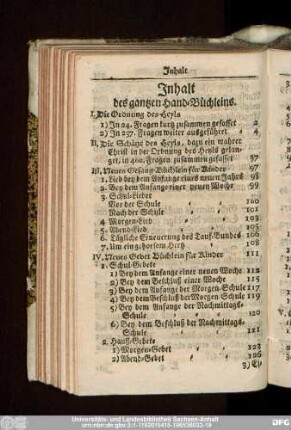 Inhalt
Inhalt
des gantzen Hand-Büchleins.
I. Die Ordnung des Heyls
1) In 24. Fragen kurtz zusammen gefasset 2
2) In 257. Fragen weiter ausgeführet 4
II. Die Schätze des Heyls, dazu ein wahrer
Christ in der Ordnung des Heyls gelan-
get, in Fragen zusammen gefasset 57
III. Neues Gesang-Büchlein für Kinder 97
1. Lied bey dem Anfange eines neuen Jahrs 98
2. Bey dem Anfange einer neuen Woche 99
3. Schul-Lieder
Vor der Schule
Nach der Schule
4. Morgen-Lied
5. Abend-Lied
6. Tägliche Erneuerung des Tauf-Bundes 106
7. Um ein gehorsam Hertz 108
IV. Neues Gebet-Büchlein für Kinder 111
1. Schul-Gebete
1) Bey dem Anfange einer neuen Woche
2) Bey dem Beschluß einer Woche 115
3) Bey dem Anfange der Morgen-Schule 117
4) Bey dem Beschluß der Morgen-Schule 119
5) Bey dem Anfange der Nachmittags-
Schule 120
6) Bey dem Beschluß der Nachmittags-
Schule 121
2. Hauß-Gebete
1) Morgen-Gebet 123
2) Abend-Gebet 126
Universitäts- und Landesbibliothek Sachsen-Anhalt
DFG